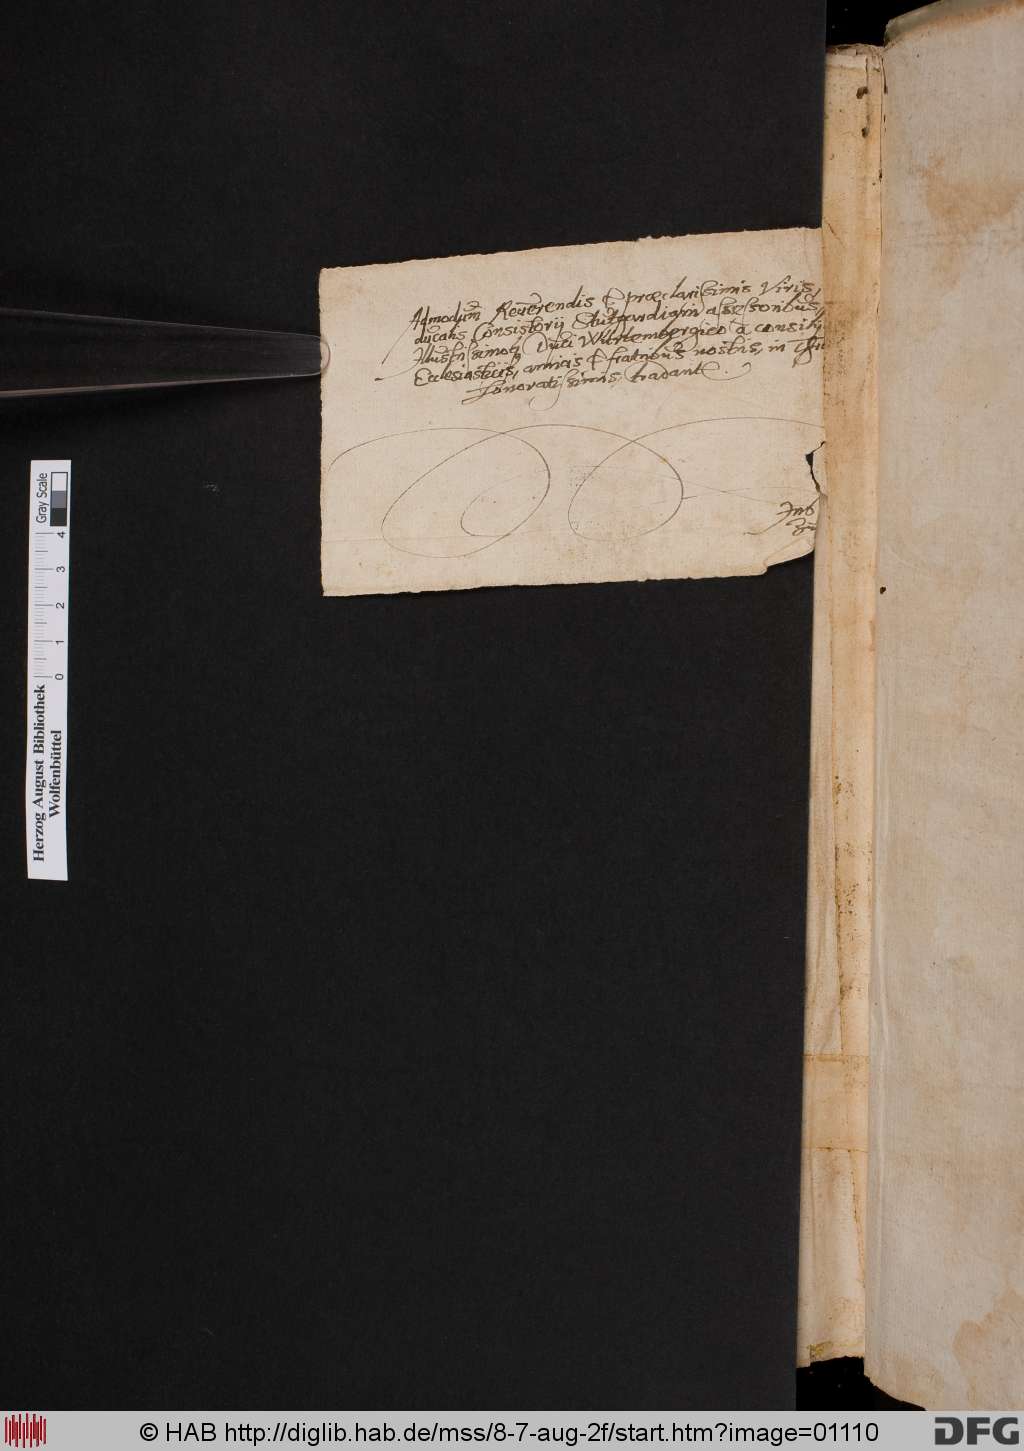 Admodum Reverendis & præclarissimis Viris,
ducalis Consistorij Stutgardiani assessoribus,
Illustrissimoq Duci Wirtembergico a consilijs
Ecclesiasticis, amicis & fratribus nostris, in
honoratissimis, tradantr.
Gray Scale
4
3
2
1
0
Herzog August Bibliothek
Wolfenbüttel
© HAB http://diglib.hab.de/mss/8-7-aug-2f/start.htm?image=01110
DFG